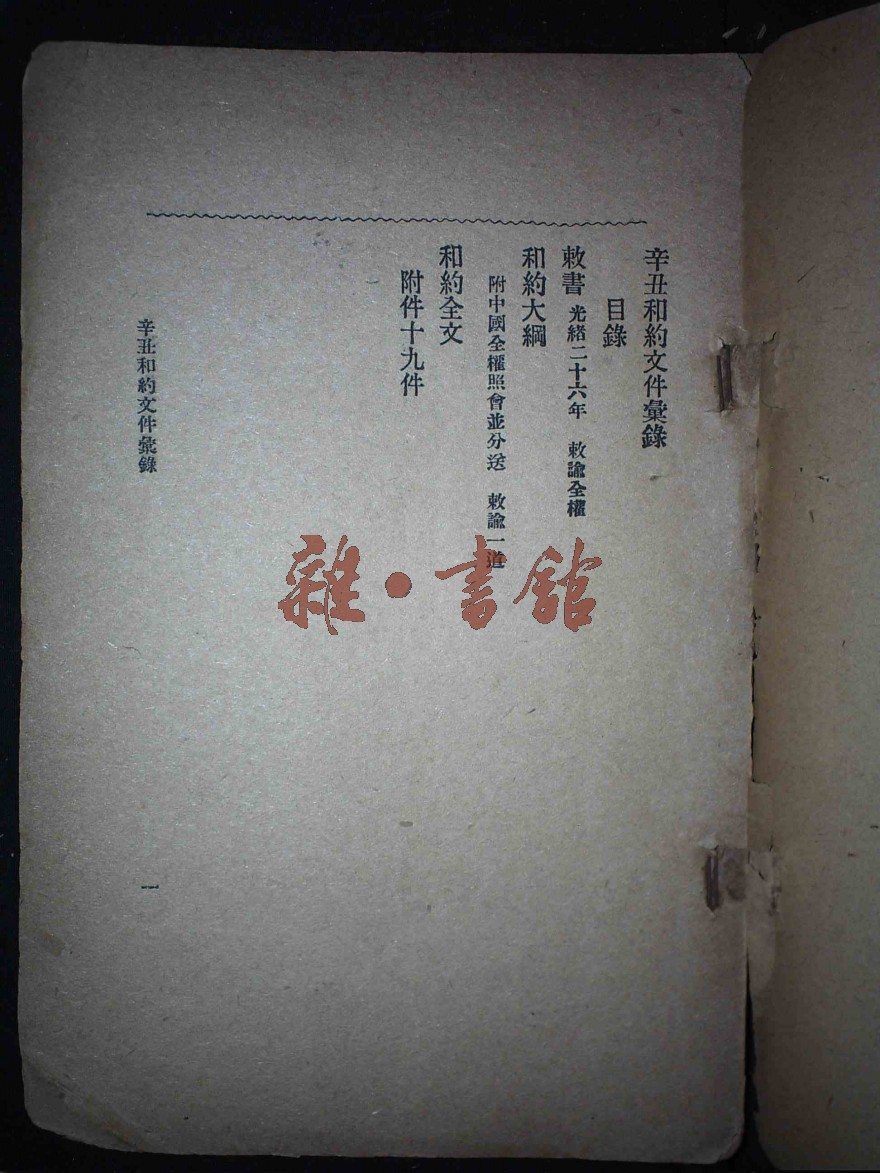 辛丑和約文件彙錄
目錄
敕書 光緒二十六年 敕諭全權
和約大綱
附中國全權照會並分送 敕諭一道
和約全文
附件十九件
辛丑和約文件彙錄
一
雜·書館